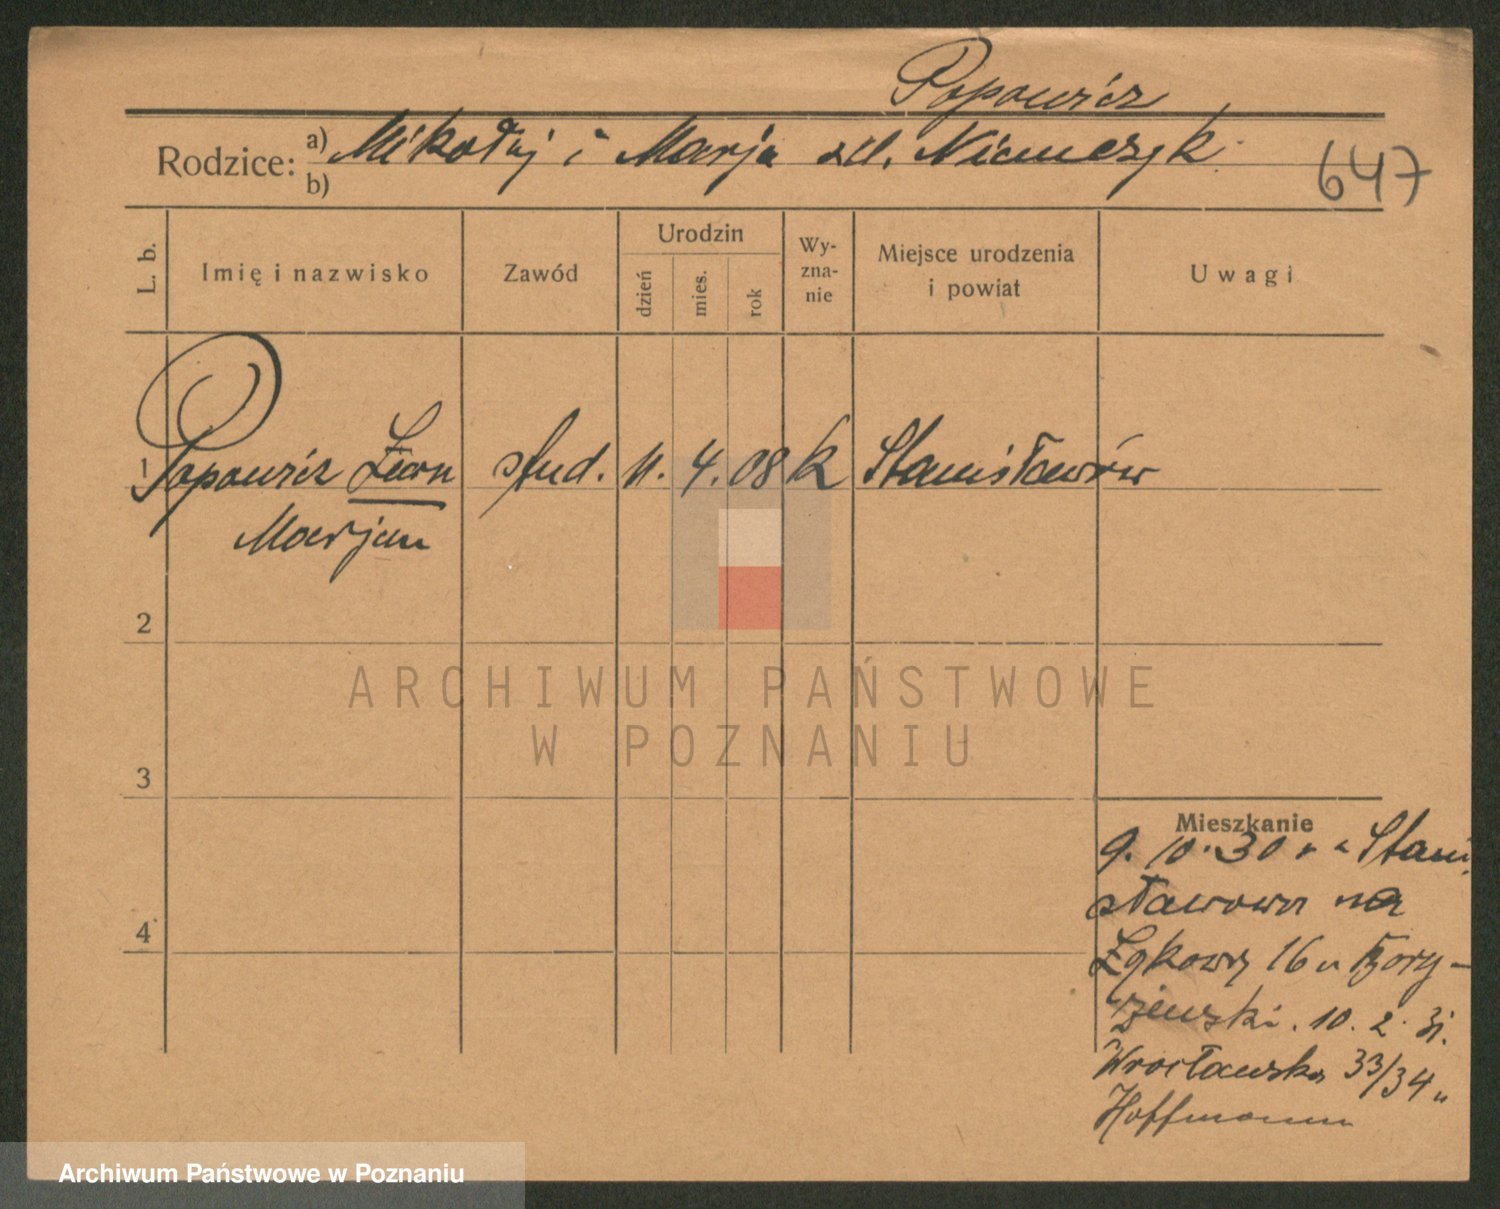 Popowicz
Rodzice: a) Mikołaj i Marja zd. Niemczyk
b)
647
L. b. Imię i nazwisko Zawód Urodzin dzień mies. rok Wy-zna-nie Miejsce urodzenia i powiat Uwagi
1 Popowicz Leon stud. 11. 4. 08 k Stanisławów
Marjan
2
ARCHIWUM PAŃSTWOWE
W POZNANIU
3
Mieszkanie
9. 10. 30 z Stani
sławowa na
4
Łąkową 16 u Bory-
szewski. 10. 2. 31.
Wrocławska 33/34 u
Hoffmann
Archiwum Państwowe w Poznaniu